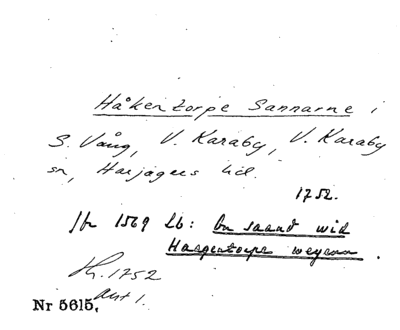 Håkentorpe Sannarne i
S. Vång, V. Karaby, V. Karaby
sn, Harjagers hd.
1752.
Jfr 1569 Lb: En saand wid
Hagentorps weyenn.
1752
Akt 1.
Nr 5615,